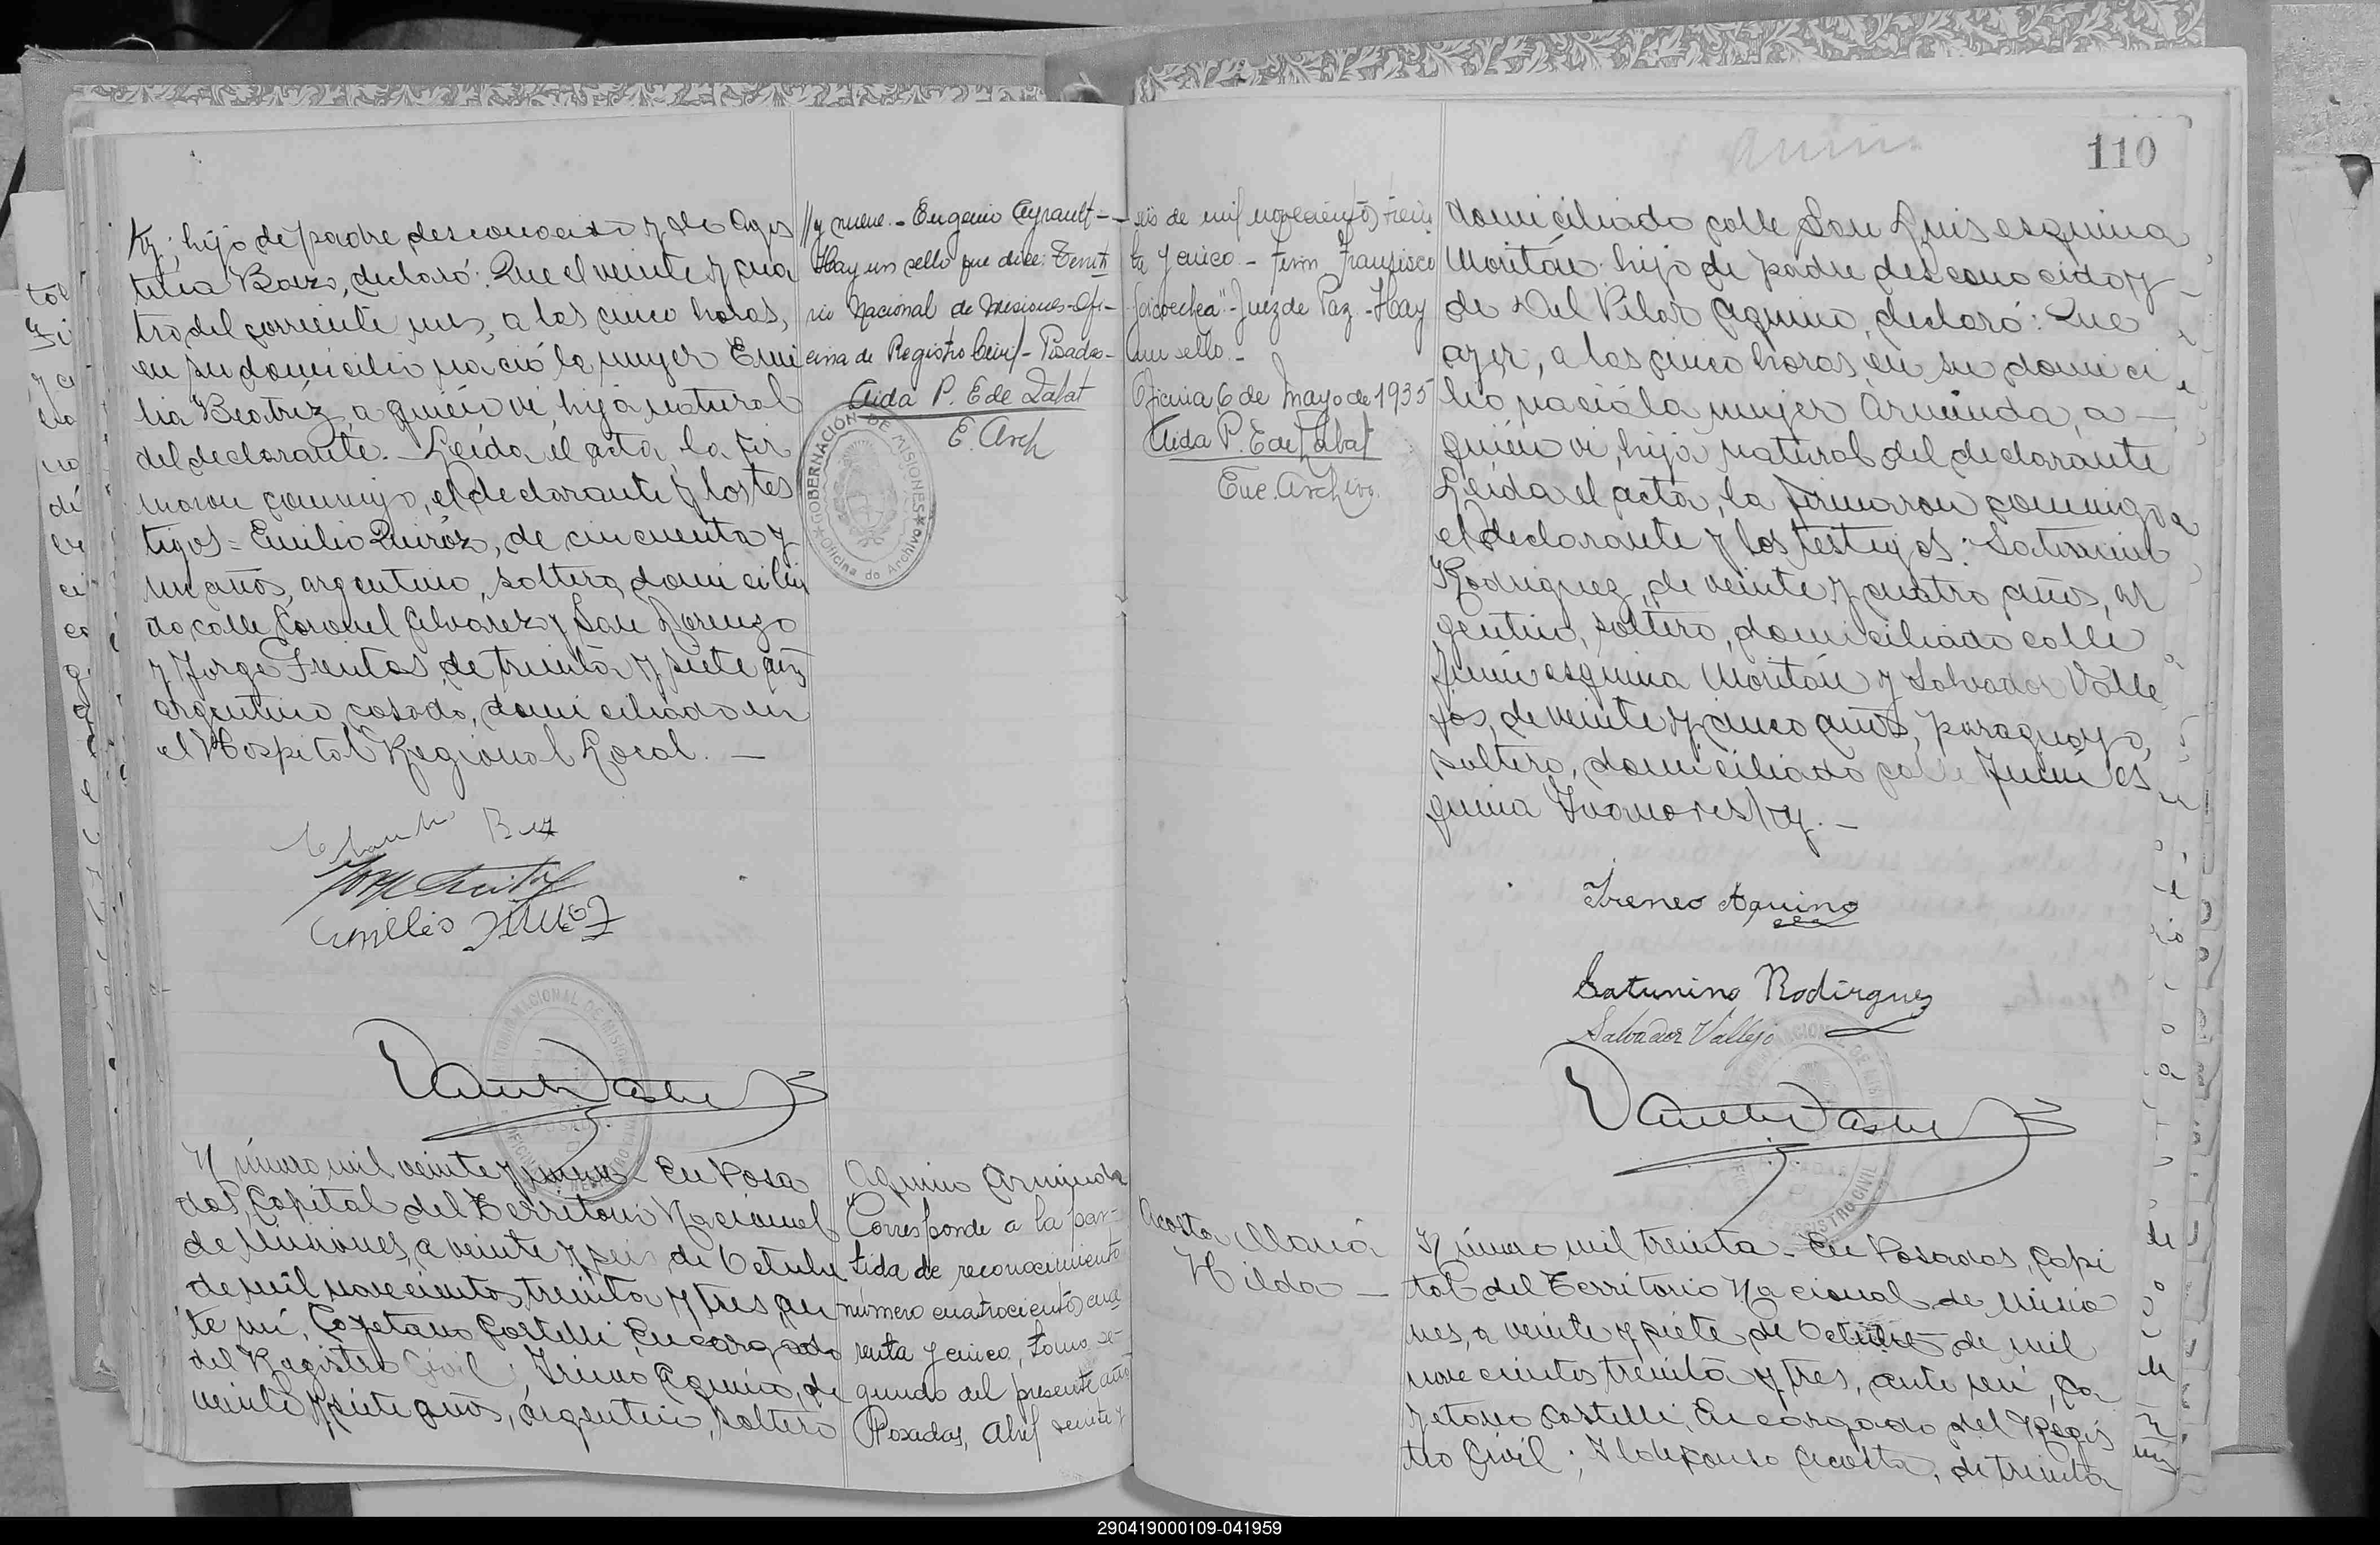 ky; hijo de padre desconocido y de Agus
tina Baez, declaró: Que el veinte y cua
tro del corriente mes, a las cinco horas,
en su domicilio nació la mujer Emi
lia Beatriz, a quién vi, hija natural
del declarante.- Leída el acta, la fir
maron conmigo, el declarante y los tes
tigos = Emilio Quiróz, de cincuenta y
un años, argentino, soltero, domicilia
do calle Coronel Alvarez y San Lorenzo
y Jorge Freitas, de treinta y siete años
argentino, casado, domiciliado en
el Hospital Regional Local. —
//y nueve.- Eugenio Ayrault -
Hay un sello que dice: Territo
rio Nacional de Misiones-Ofi-
cina de Registro Civil - Posadas-
Aida P. E de Labat
E. Arch
GOBERNACIÓN DE MISIONES
Oficina de Archivo
Baez
Jorge Freitas
Emilio Quiroz
Número mil veinte y nueve - En Posa
das, Capital del Territorio Nacional
de Misiones, a veinte y seis de Octubre
de mil novecientos treinta y tres, an
te mí, Cayetano Castelli, Encargado
del Registro Civil; Irineo Aquino, de
veinte y siete años, argentino, soltero
Aquino Arminda
Corresponde a la par-
tida de reconocimiento
número cuatrocientos cua
renta y cinco, tomo se-
gundo del presente año
Posadas, Abril veinte y
seis de mil novecientos trein
ta y cinco - Francisco
Goicoechea"-Juez de Paz.-Hay
un sello.-
Oficina 6 de Mayo de 1935
Aida P. E de Labat
Enc. Archivo.
110
domiciliado calle San Luis esquina
Moritán hijo de padre desconocido y
de Del Pilar Aquino, declaró: Que
ayer, a las cinco horas en su domici
lio nació la mujer Arminda, a -
quién vi, hija natural del declarante
Leída el acta, la firmaron conmigo
el declarante y los testigos: Saturnino
Rodriguez, de veinte y cuatro años, ar
gentino, soltero, domiciliado calle
Junín esquina Moritán y Salvador Valle
jos, de veinte y cinco años, paraguayo,
soltero, domiciliado calle Junín es
quina Ivanowsky. —
Ireneo Aquino
Saturnino Rodirguez
Salvador Vallejo
Acosta María
Hilda —
Número mil treinta - En Posadas, Capi
tal del Territorio Nacional de Misio
nes, a veinte y siete de Octubre de mil
novecientos treinta y tres, ante mí, Ca
yetano Castelli, Encargado del Regis
tro Civil; Ildefonso Acosta, de treinta
290419000109-041959